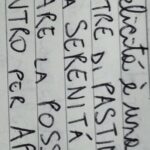 felicitá è una
TRE DI PASTI
A SERENITÁ
ARE LA POSS
NTRO PER AP